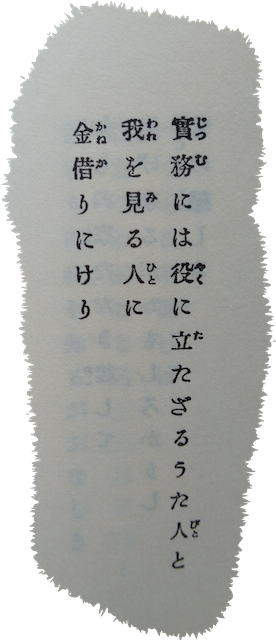 實務には役に立たざるうた人と
我を見る人に
金借りにけり